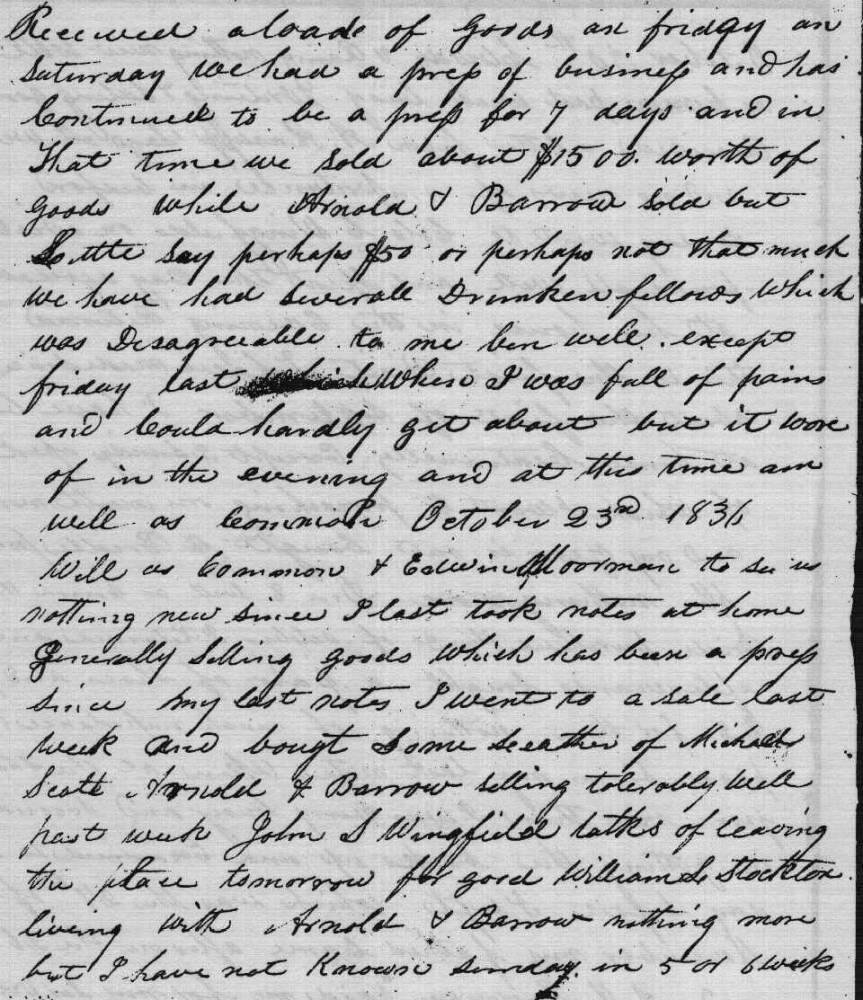 Received a loade of Goods on fridy an
Saturday we had a press of business and has
Continued to be a press for 7 days and in
That time we sold about $1500. worth of
goods while Arnold & Barrow sold but
Little say perhaps $50 or perhaps not that much
We have had severall Drunken fellows Which
was Disagreeable to me ben well. except
friday last When I was full of pains
and Could hardly get about but it wore
of in the evening and at this time am
well as Common October 23rd 1836
Well as Common & Edwin Moorman to see us
nothing new since I last took notes at home
Generally Selling goods which has been a press
since my last notes I went to a sale last
week and bougt Some Leather of Michael
Scott Arnold & Barrow selling tolerably Well
past week John S Wingfield talks of leaving
the place tomorrow for good William L Stockton
living with Arnold & Barrow nothing more
but I have not Known sunday in 5 or 6 weeks